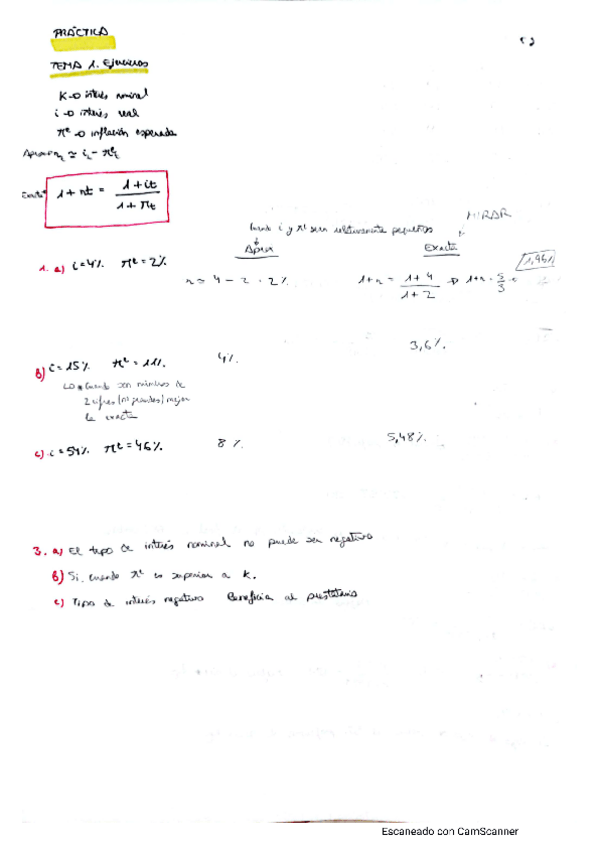 PRÁCTICA
TEMA 1. Ejercicios
K → interés nominal
i → interés real
πe → inflación esperada
Aprox rt ≃ it - πet
Exacta 1 + rt = 1 + it / 1 + πt
MIRAR
Cuando i y πe sean relativamente pequeños
Aprox Exacta
1. a) i = 4% πe = 2%
r ≃ 4 - 2 = 2% 1 + r = 1 + 4 / 1 + 2 ⇒ 1 + r = 5/3 = 1,961
b) i = 15% πe = 11% 4% 3,6%
Cuando son números de
2 cifres (nº grandes) mejor
la exacta
c) i = 54% πe = 46% 8% 5,48%
3. a) El tipo de interés nominal no puede ser negativo
b) Si, cuando πe es superior a K.
c) Tipo de interés negativo Beneficia al prestatario
Escaneado con CamScanner